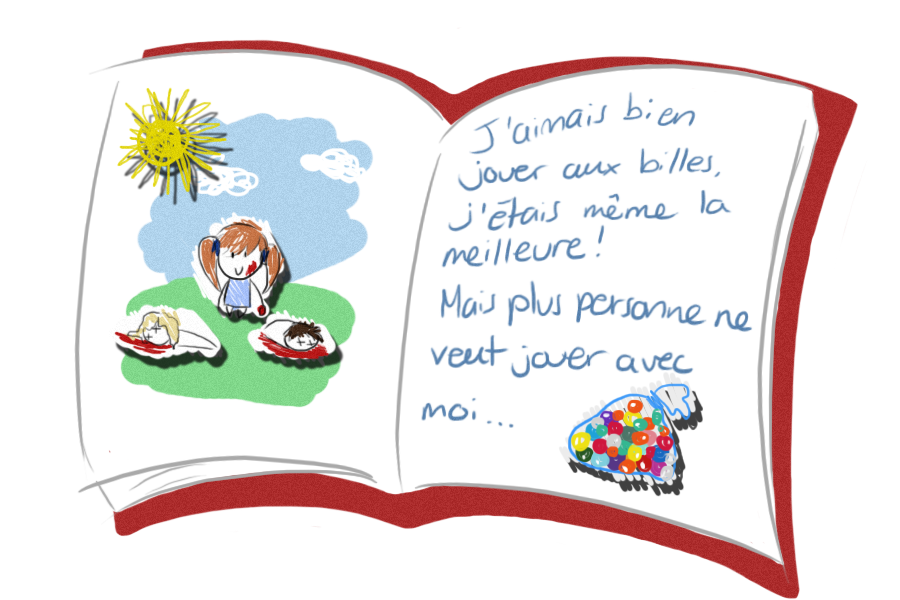 J'aimais bien
jouer aux billes,
j'étais même la
meilleure !
Mais plus personne ne
veut jouer avec
moi...